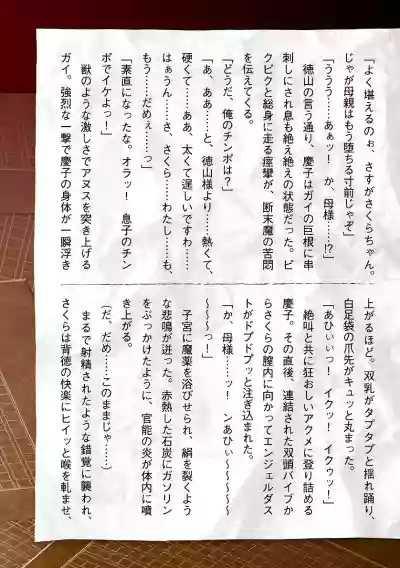 「よく堪えるのぉ、さすがさくらちゃん。
じゃが母親はもう堕ちる寸前じゃぞ」
「ううう……あぁッ！　か、母様……!?」
　徳山の言う通り、慶子はガイの巨根に串
刺しにされ息も絶え絶えの状態だった。ビ
クビクと総身に走る痙攣が、断末魔の苦悶
を伝えてくる。
「どうだ、俺のチンポは？」
「あ、ああ……と、徳山様より……熱くて、
硬くて……ああ、太くて逞しいですわ……
はぁうん……さ、さくら……わたし……も、
もう……だめぇ……っ」
「素直になったな。オラッ！　息子のチン
ポでイケよっ！」
　獣のような激しさでアヌスを突き上げる
ガイ。強烈な一撃で慶子の身体が一瞬浮き
上がるほど。双乳がタプタプと揺れ踊り、
白足袋の爪先がキュッと丸まった。
「あひぃぃっ！　イクッ！　イクゥッ！」
　絶叫と共に狂おしいアクメに登り詰める
慶子。その直後、連結された双頭バイブか
らさくらの膣内に向かってエンジェルダス
トがドプドプッと注ぎ込まれた。
「か、母様……ッ！　ンあひぃ～～～～
～～～っ！」
　子宮に魔薬を浴びせられ、絹を裂くよう
な悲鳴が迸った。赤熱した石炭にガソリン
をぶっかけたように、官能の炎が体内に噴
き上がる。
（だ、だめ……このままじゃ……）
　まるで射精されたような錯覚に襲われ、
さくらは背徳の快楽にヒイッと喉を軋ませ、